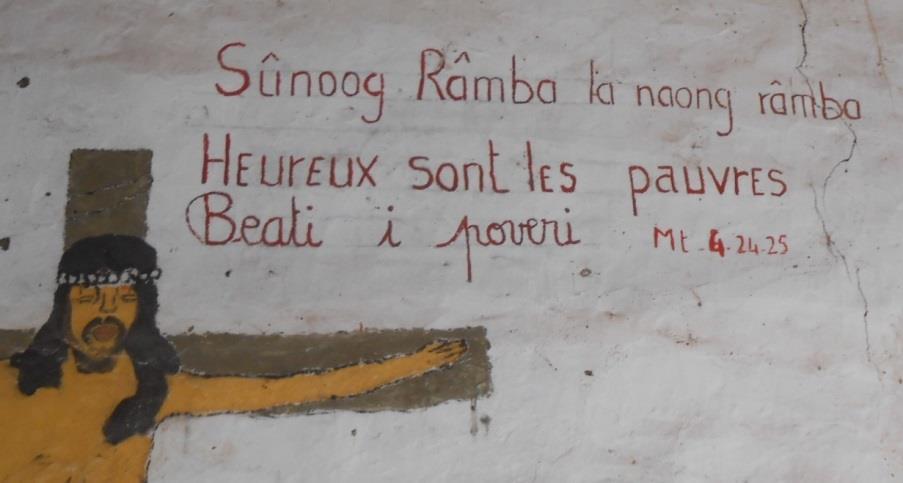 Sûnoog Râmba la naong râmba
HEUREUX sont les pauvres
Beati i poveri Mt - 4.24.25